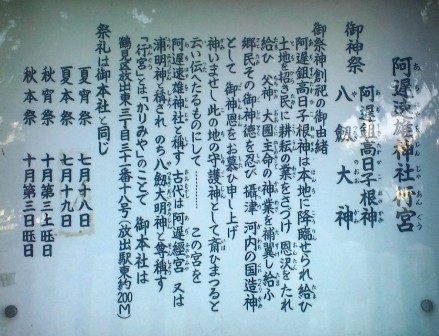 阿遅速雄神社行宮
御神祭 阿遅鉏高日子根神
八劔大神
御祭神創祀の御由緒
阿遅鉏高日子根神は本地に降臨せられ給ひ
土地を招き民に耕耘の業をさづけ 恩沢をたれ
給ひ 父神 大國主命の神業を補翼し給ふ
郷民その御神徳を忍び 攝津 河内の国造神
として 御神恩をお慕ひ申し上げ
神います この地の守護神として斎ひまつると
云い伝たるものにして………… この宮を
阿遅速雄神社と稱す 古代は阿遅經宮 又は
浦明神と稱され のち八劔大明神と尊稱す
「行宮」とは「かりみや」のことで 御本社は
鶴見区放出東三丁目三十一番十八号(放出駅東約200M)
祭礼は御本社と同じ
夏宵祭 七月十八日
夏本祭 七月十九日
秋宵祭 十月第三土旺日
秋本祭 十月第三日旺日